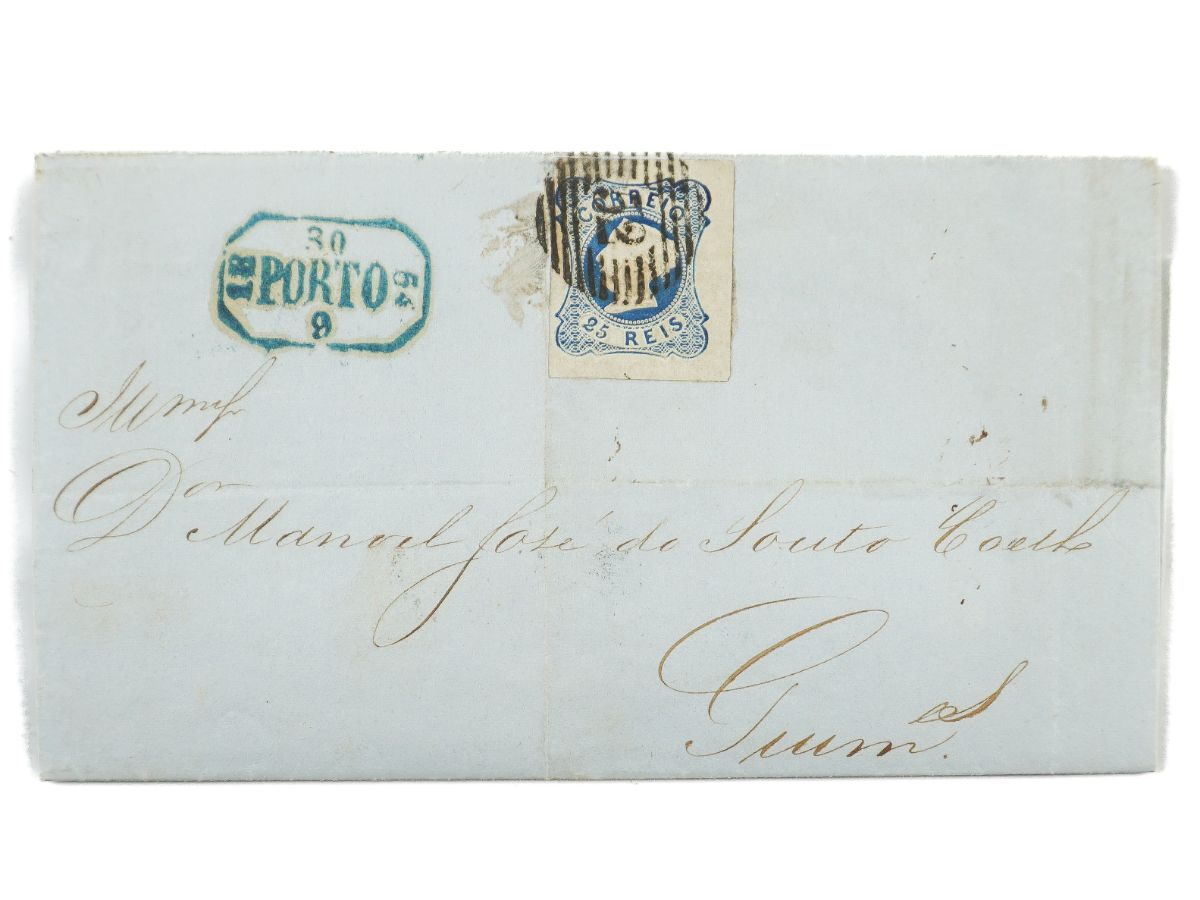 30
18 PORTO 54
9
CORREIO
25 REIS
D.or Manoel José do Souto Coelho
Guim.es